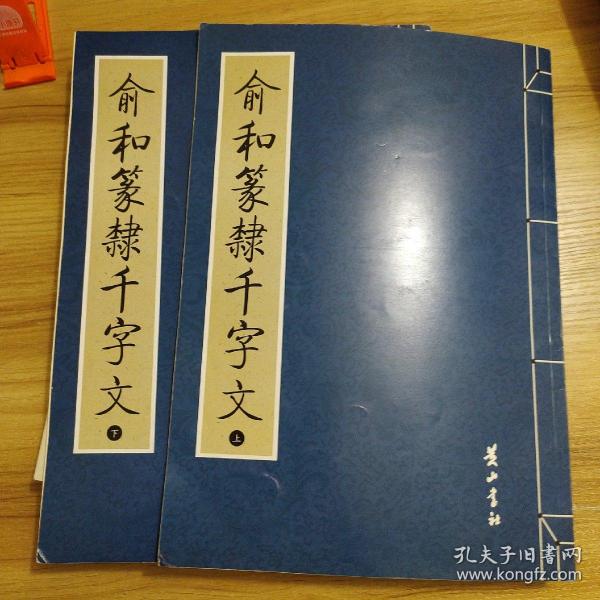 俞和篆隸千字文
下
俞和篆隸千字文
上
黄山书社
孔夫子旧书网
www.kongfz.com